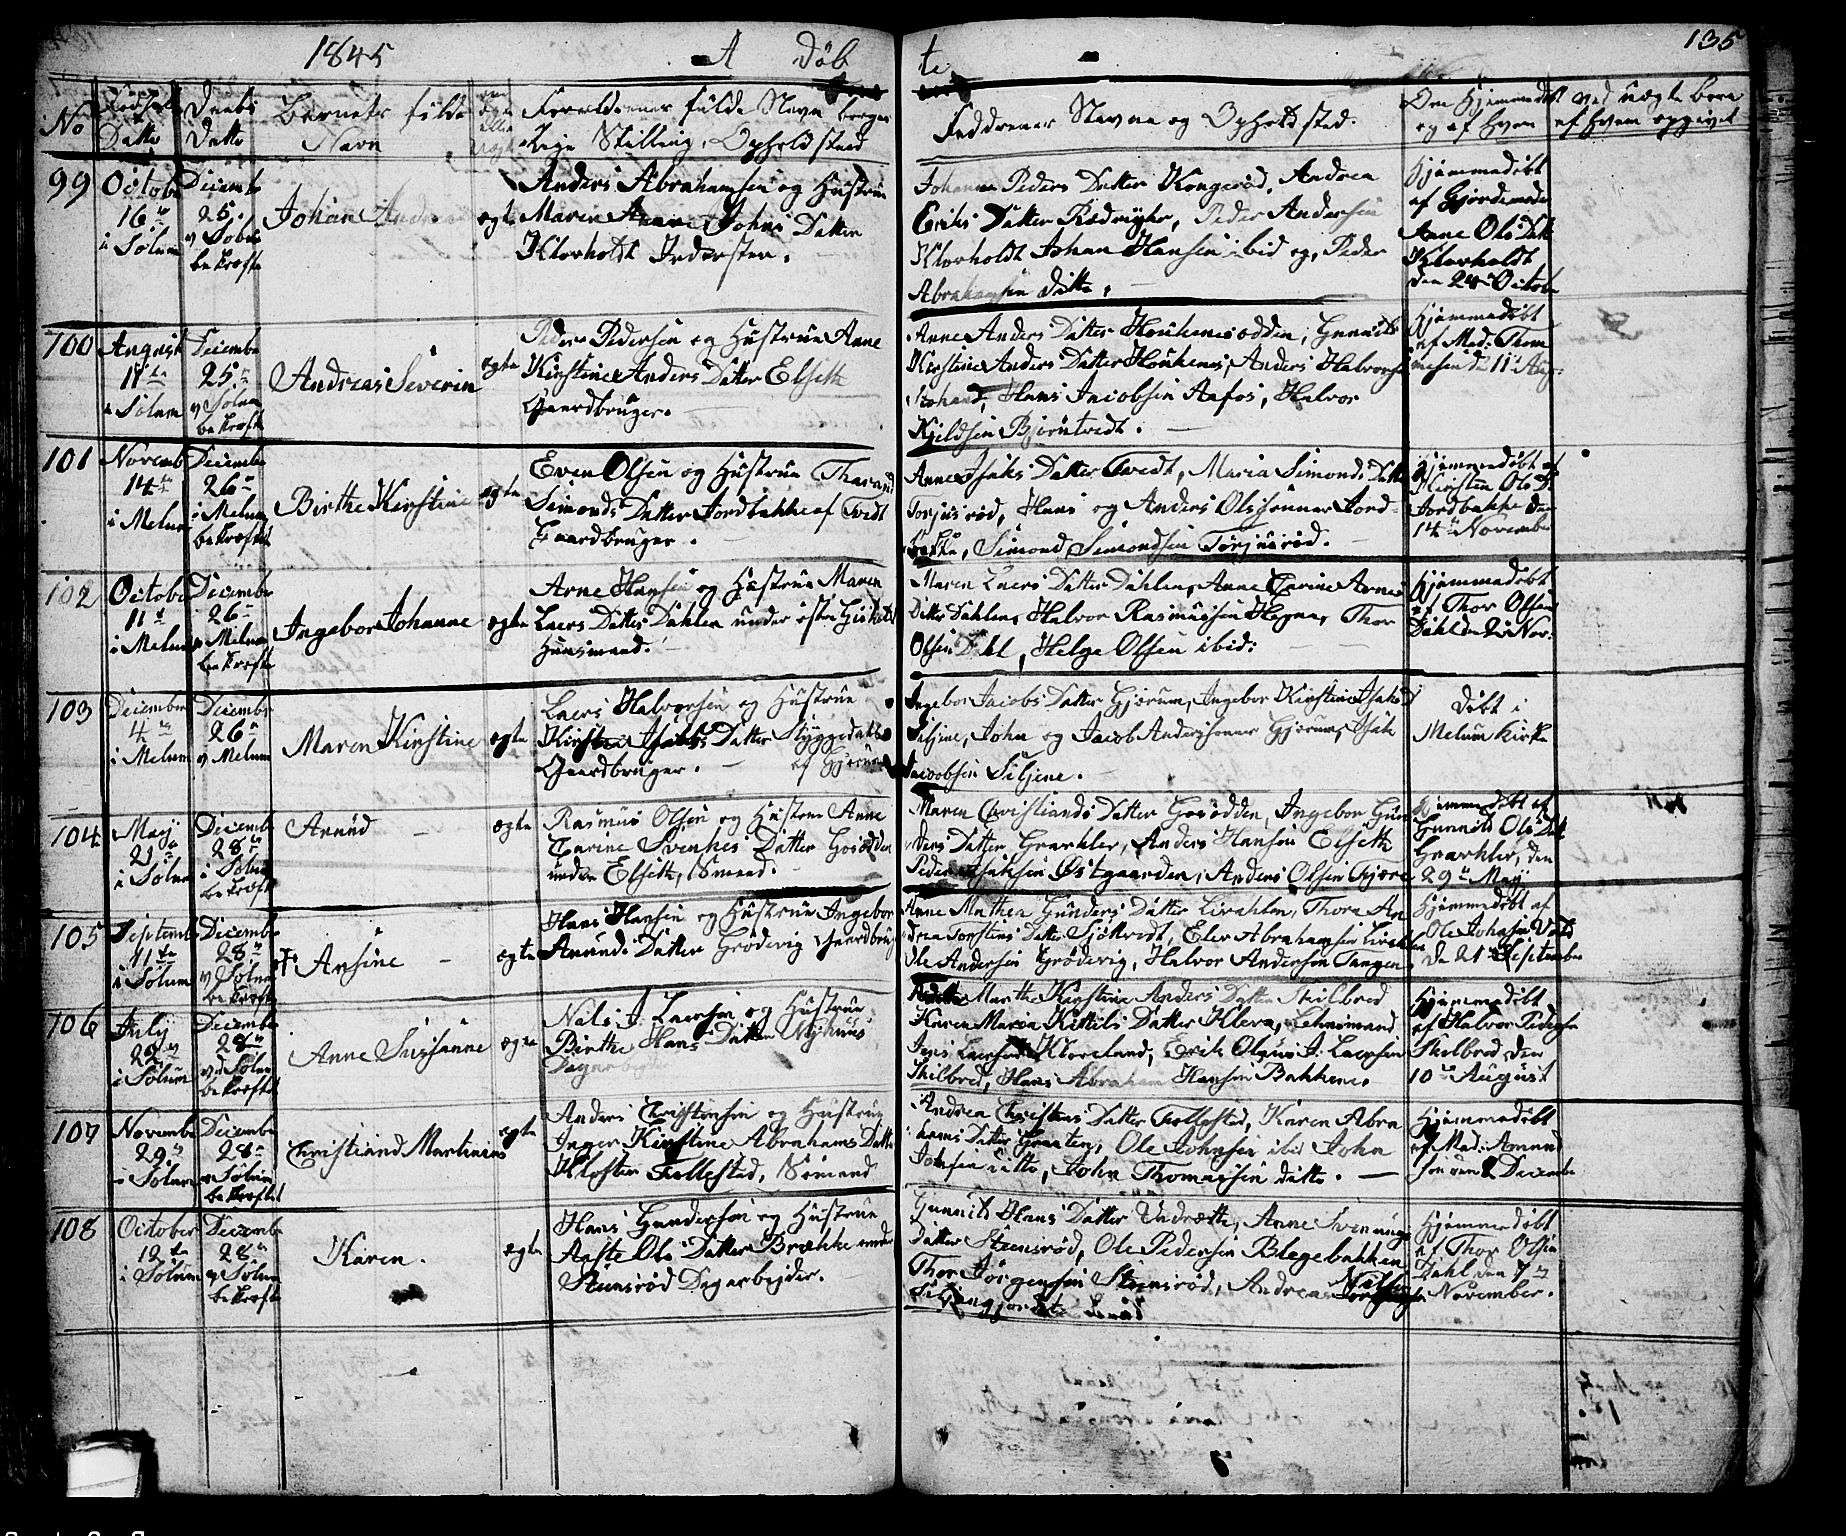 1845 A Døbte 135
No
Fødsels Datto
Daabs Datto
Barnets fulde Navn
om ægte eller uægte
Foreldrenes fulde Navn borger
lige Stilling, Opholdsted
Faddrenes Navne og Opholdsted.
Om Hjemmedøbt
og af hvem
ved uægte børn
af hvem opgivet
99
October
16de
i Solum
December
25
v Solum
bekræfte
Johan
ægte
Anders Abrahamsen og Hustrue
Maren Johns Datter
Klovholdt Inderster.
Peders Datter Kongerød, Andrea
Eriks Datter Rødmyhr, Peder Andersen
Klovholdt Johan Hansen ibid og, Peder
Abrahamsen ditto.
Hjemmedøbt
af Gjordemoder
Anne Ols Datt
Klovholdt
den 24 Octobe
100
August
11te
i Solum
Decembe
25
v Solum
bekræfte
Andreas Severin
ægte
Peder Pedersen og Hustrue Anne
Kirstine Anders Datter Elseth
Gaardbruger.
Anne Anders Datter, Gunnild
Kirstine Anders Datter, Anders Halvors
Hans Jacobsen Aafos, Halvor
Kjeldsen Bjørntvedt.
Hjemmedøbt
af Mad: Thom
mesen d 11 Aug:
101
Novemb
14
i Melum
Decembe
26
i Melum
bekræftet
Birthe Kirstine
ægte
Even Olsen og Hustrue
Simonds Datter Jordbakke af Tvedt
Gaardbruger.
Anne Isaks Datter Tvedt, Maria Simonds Datte
Torjusrød, Hans og Anders Olssønner Jord-
bakke, Simond Simondsen Torjusrød.
Hjemmedøbt af
Kirsten Ols D
Jordbakke den
14 November
102
October
11
i Melum
Decembe
26
v Melum
bekræfte
Ingebor Johanne
ægte
Arne Hansen og Hustrue Maren
Laers Datter Dahlen under østre
Huusmand.
Maren Laers Datter Dahlen, Anne Carine Arnes
Datter Dahlen, Halvor Rasmussen Hegna, Thor
Olsen Dahl, Helge Olsen ibid:
Hjemmedøbt
af Thor Olsen
Dahl den 2 Nov:
103
December
4
i Melum
Decembe
26
v Melum
Maren Kirstine
ægte
Laers Halvorsen og Hustrue
Kirstine Isaks Datter
Gaardbruger. af Gjerum
Ingebor Jacobs Datter Gjerum, Ingebor Kirstine Isaks D
Siljene, John og Jacob Anderssønner Gjerum, Isak
Jacobsen Siljene.
Døbt i
Melum Kirke
104
Maji
21
i Solum
Decembe
28
i Solum
bekræfte
Arnud
ægte
Rasmus Olsen og Hustrue Anne
Carine Svenkes Datter Gosodden
under Elseth, Smand.
Maren Christiands Datter Gosodden, Ingebor Gun
ders Datter, Anders Hansen Elseth
Peder Isaksen Østgaarden, Anders Olsen
Hjemmedøbt af
Gunnild Ols Datt
den
29 Maji
105
Septembe
11te
i Solum
Decembe
28
v Solum
bekræfte
Ansine
ægte
Hans Hansen og Hustrue Ingebor
Amunds Datter Grødevig Gaardbrug
Anne Mathea Gunders Datter, Thora An
drea Torstens Datter, Elev Abrahamsen
Ole Andersen Grødevig, Halvor Anderson Tangen
Hjemmedøbt af
Ole Johnsen
den 21 September
106
July
22
i Solum
Decembe
28
v d Solum
bekræftet
Anne Susanne
ægte
Nils J. Laersen og Hustrue
Birthe Hans Datter
Marthe Kirstine Anders Datter Skilbred
Karen Maria Kittils Datter
Laersen Kloveland, Erik J. Laersen
Skilbred, Hans Abraham Hansen Bakkene.
Hjemmedøbt
af Halvor Pedersen
Skilbred den
10 August
107
Novembe
29
i Solum
Decembe
28
v Solum
bekræftet
Christiand Martinius
ægte
Anders Christensen og Hustrue
Inger Kirstine Abrahams Datte
Kloster Follestad, Sømand
Andrea Christens Datter Follestad, Karen Abra
hams Datter Graaten, Ole Johnsen ibid John
Johnsen ditto, John Thomassen ditto.
Hjemmedøbt
af Mad: Amund
sen den 2 Decembe
108
October
12te
i Solum
Decembe
28
v Solum
bekræfte
Karen.
ægte
Hans Gundersen og Hustrue
Aaste Ols Datter Brække under
Steensrød Dagarbejder.
Gunnild Hans Datter, Anne Svennungs
Datter Steensrød, Ole Pedersen Blegebakken
Thor Jørgensen Steensrød, Andreas
Hjemmedøbt
af Thor Olsen
Dahl den 7
November.